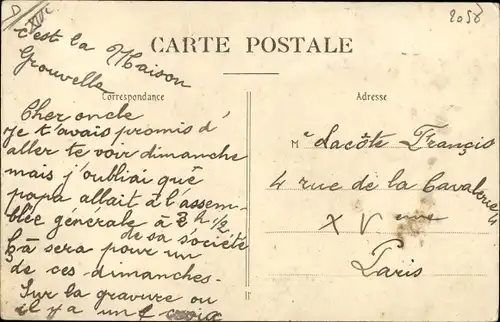 2058
c'est la Maison
Grouvelle
CARTE POSTALE
Correspondance
Cher oncle
je t'avais promis d'
aller te voir dimanche
mais j'oubliai que
papa allait à l'assem-
blée générale à 3 h 1/2
de sa société
Çà sera pour un
de ces dimanches-
Sur la gravure ou
il y a un croix
Adresse
Mr Lacôte François
4 rue de la Cavalerie 4
XVeme
Paris